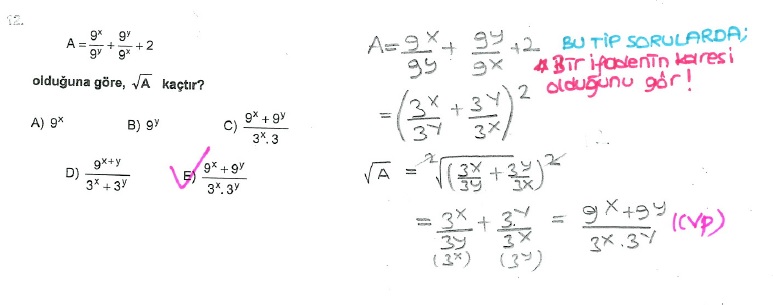 12.
A = 9^x/9^y + 9^y/9^x + 2
olduğuna göre, √A kaçtır?
A) 9^x B) 9^y C) (9^x + 9^y)/(3^x . 3)
D) 9^(x+y)/(3^x + 3^y) E) (9^x + 9^y)/(3^x . 3^y)
A = 9^x/9^y + 9^y/9^x + 2
BU TİP SORULARDA;
* Bir ifadenin karesi
olduğunu gör!
= (3^x/3^y + 3^y/3^x)^2
√A = ²√(3^x/3^y + 3^y/3^x)^2
= 3^x/3^y + 3^y/3^x = (9^x + 9^y)/(3^x . 3^y) (CVP)
(3^x) (3^y)